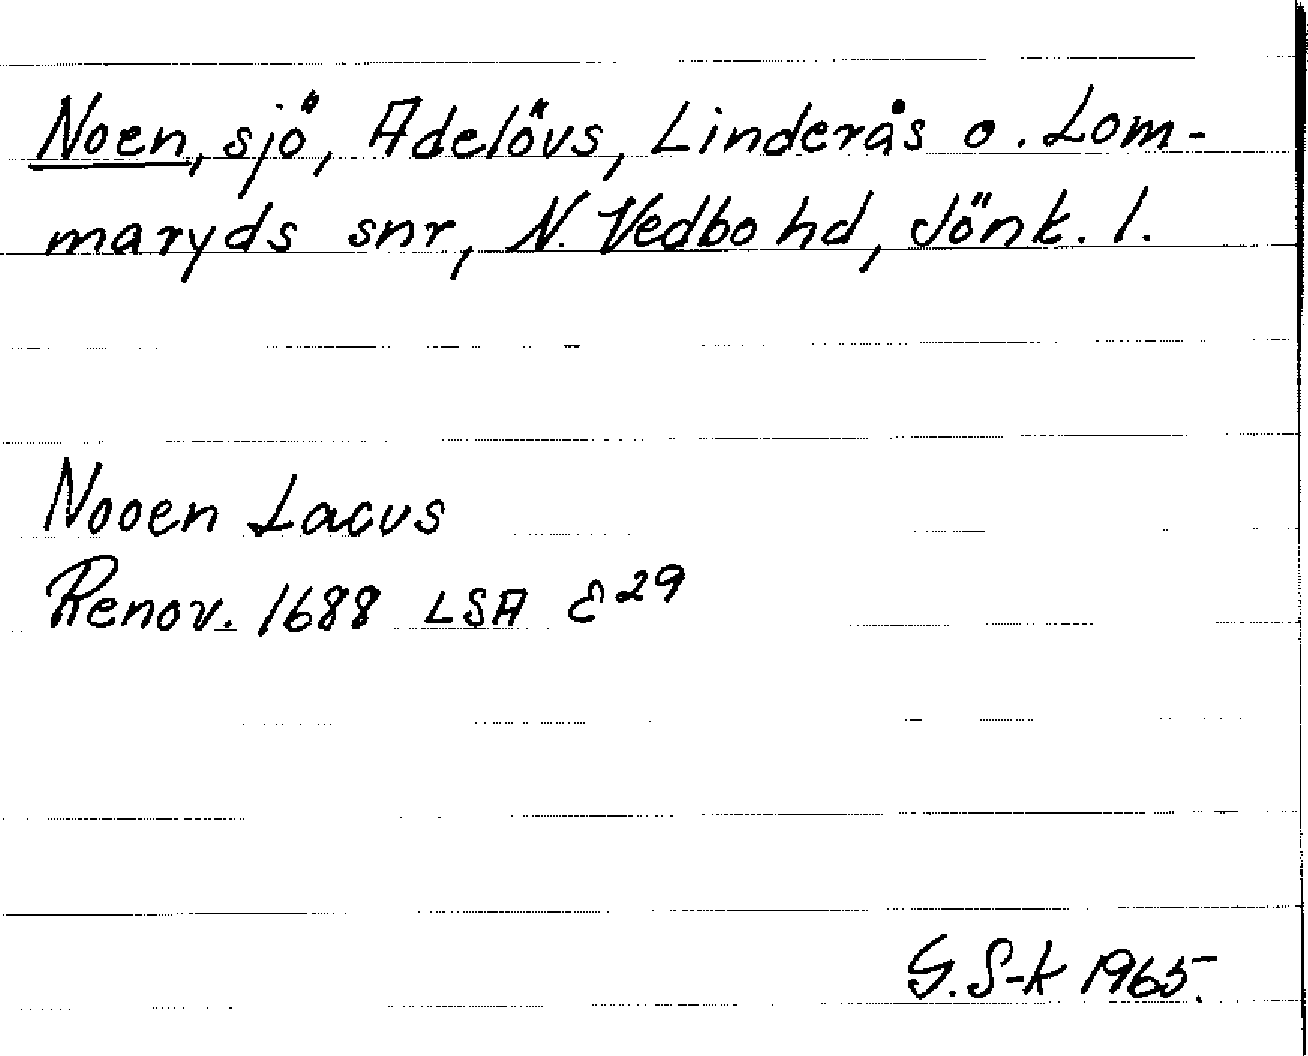 Noen, sjö, Adelövs, Linderås o. Lom-
maryds snr, N. Vedbo hd, Jönk. l.
Nooen Lacus
Renov. 1688 LSA E29
G. S-k 1965.